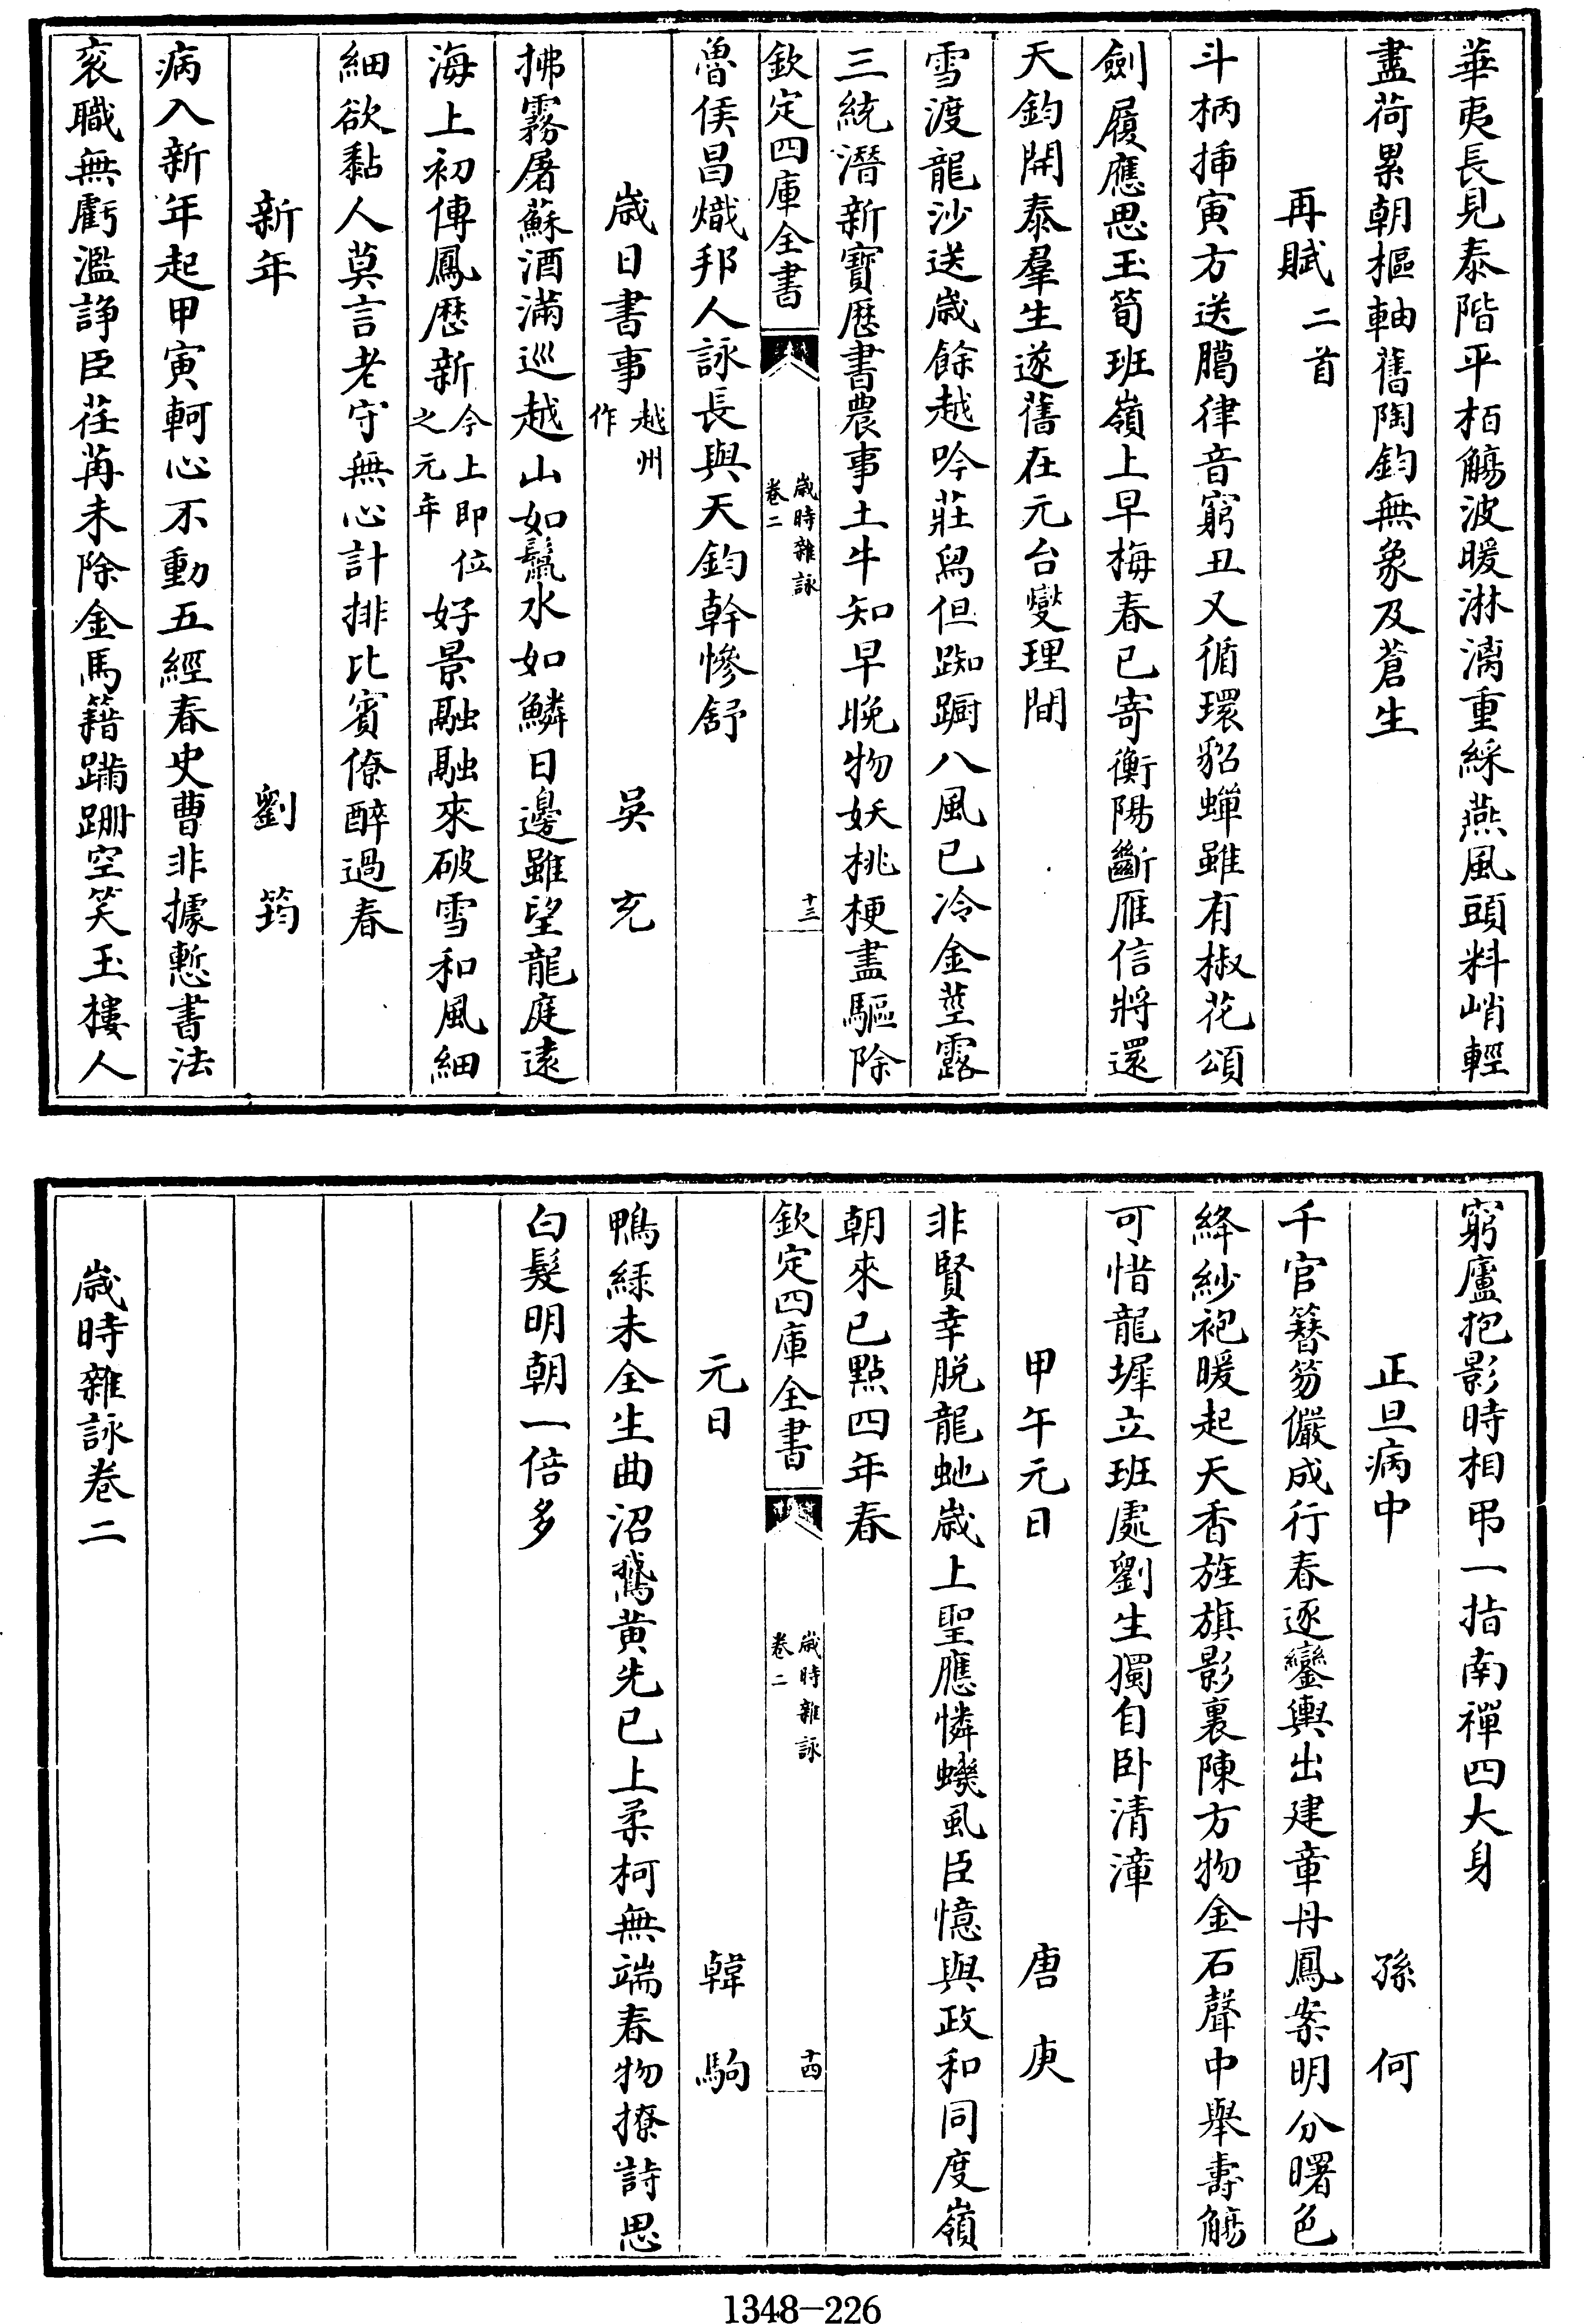 華夷長見泰階平栢觴波暖淋漓重綵燕風頭料峭輕
盡荷累朝樞軸舊陶鈞無象及蒼生
再賦二首
斗柄揷寅方送臈律音窮丑又循環貂蟬雖有椒花頌
劍履應思玉筍班嶺上早梅春已寄衡陽斷雁信將還
天鈞開泰羣生遂舊在元台燮理間
雪渡龍沙送歲餘越吟莊舄但踟蹰八風已冷金莖露
三統潛新寶歴書農事土牛知早晚物妖桃梗盡驅除
欽定四庫全書
歲時雜詠
卷二
十三
魯侯昌熾邦人詠長與天鈞幹慘舒
歲日書事越州作
吳充
拂霧屠蘇酒滿巡越山如鬟水如鱗日邊雖望龍庭逺
海上初傳鳳歴新今上即位之元年好景融融來破雪和風細
細欲黏人莫言老守無心計排比賓僚醉過春
新年
劉筠
病入新年起甲寅軻心不動五經春史曹非據慙書法
衮職無虧濫諍臣荏苒未除金馬籍蹣跚空笑玉樓人
窮廬抱影時相弔一指南禪四大身
正旦病中
孫何
千官簪笏儼成行春逐鑾輿出建章丹鳳案明分曙色
絳紗袍暖起天香旌旗影裏陳方物金石聲中舉壽觴
可惜龍墀立班處劉生獨自卧清漳
甲午元日
唐庚
非賢幸脱龍虵歲上聖應憐蟣虱臣憶與政和同度嶺
朝來已點四年春
欽定四庫全書
歲時雜詠
卷二
十四
元日
韓駒
鴨緑未全生曲沼鵞黄先已上柔柯無端春物撩詩思
白髮明朝一倍多
歲時雜詠卷二
1348-226